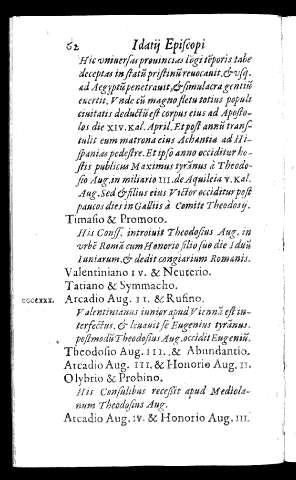 62 Idatij Episcopi
Hic vniuersas prouincias lōgi tēporis tabe
deceptas in statū pristinū reuocauit, & vsq́.
ad Aegyptū penetrauit, & simulacra gentiū
euertit. Vnde cū magno fletu totius populi
ciuitatis deductū est corpus eius ad Aposto-
los die XIV. Kal. April. Et post annū trans-
tulit eum matrona eius Achantia ad Hi-
spanias pedestre. Et ipso anno occiditur ho-
stis publicus Maximus tyrānus à Theodo-
sio Aug. in miliario III. de Aquileia V. Kal.
Aug. Sed & filius eius Victor occiditur post
paucos dies in Galliis à Comite Theodosij.
Timasio & Promoto.
His Conss. introiuit Theodosius Aug. in
vrbē Romā cum Honorio filio suo die Iduū
Iuniarum, & dedit congiarium Romanis.
Valentiniano IV. & Neuterio.
Tatiano & Symmacho.
CCCCXXX. Arcadio Aug. II. & Rufino.
Valentinianus iunior apud Viennā est in-
terfectus. & leuauit se Eugenius tyrānus.
postmodū Theodosius Aug. occidit Eugeniū.
Theodosio Aug. III. & Abundantio.
Arcadio Aug. III. & Honorio Aug. II.
Olybrio & Probino.
His Consulibus recessit apud Mediola-
num Theodosius Aug.
Arcadio Aug. IV. & Honorio Aug. III.